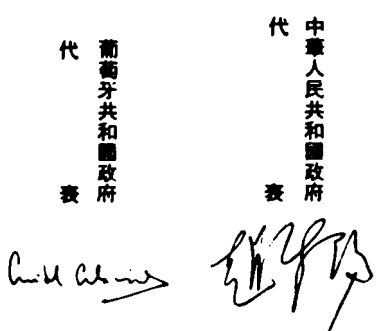 中華人民共和國政府
代表
葡萄牙共和國政府
代表